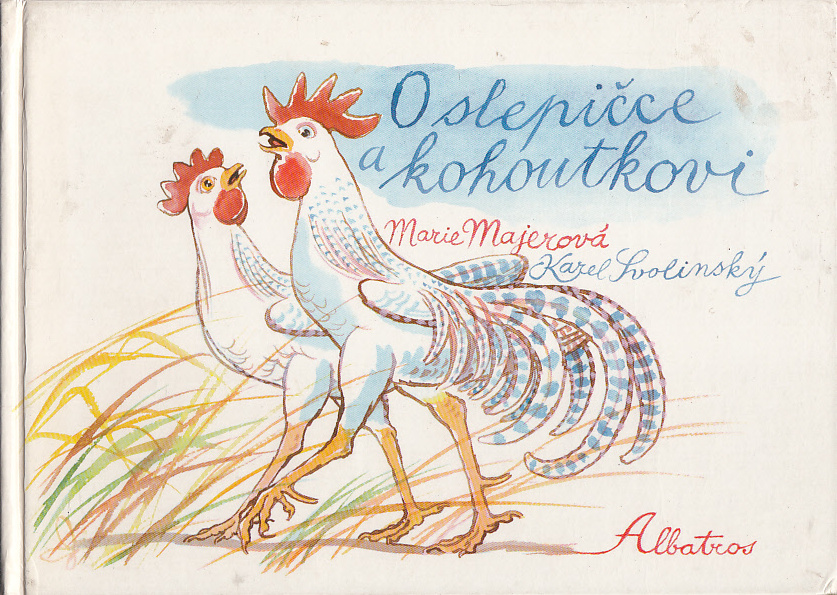 O slepičce
a kohoutkovi
Marie Majerová
Karel Svolinský
Albatros